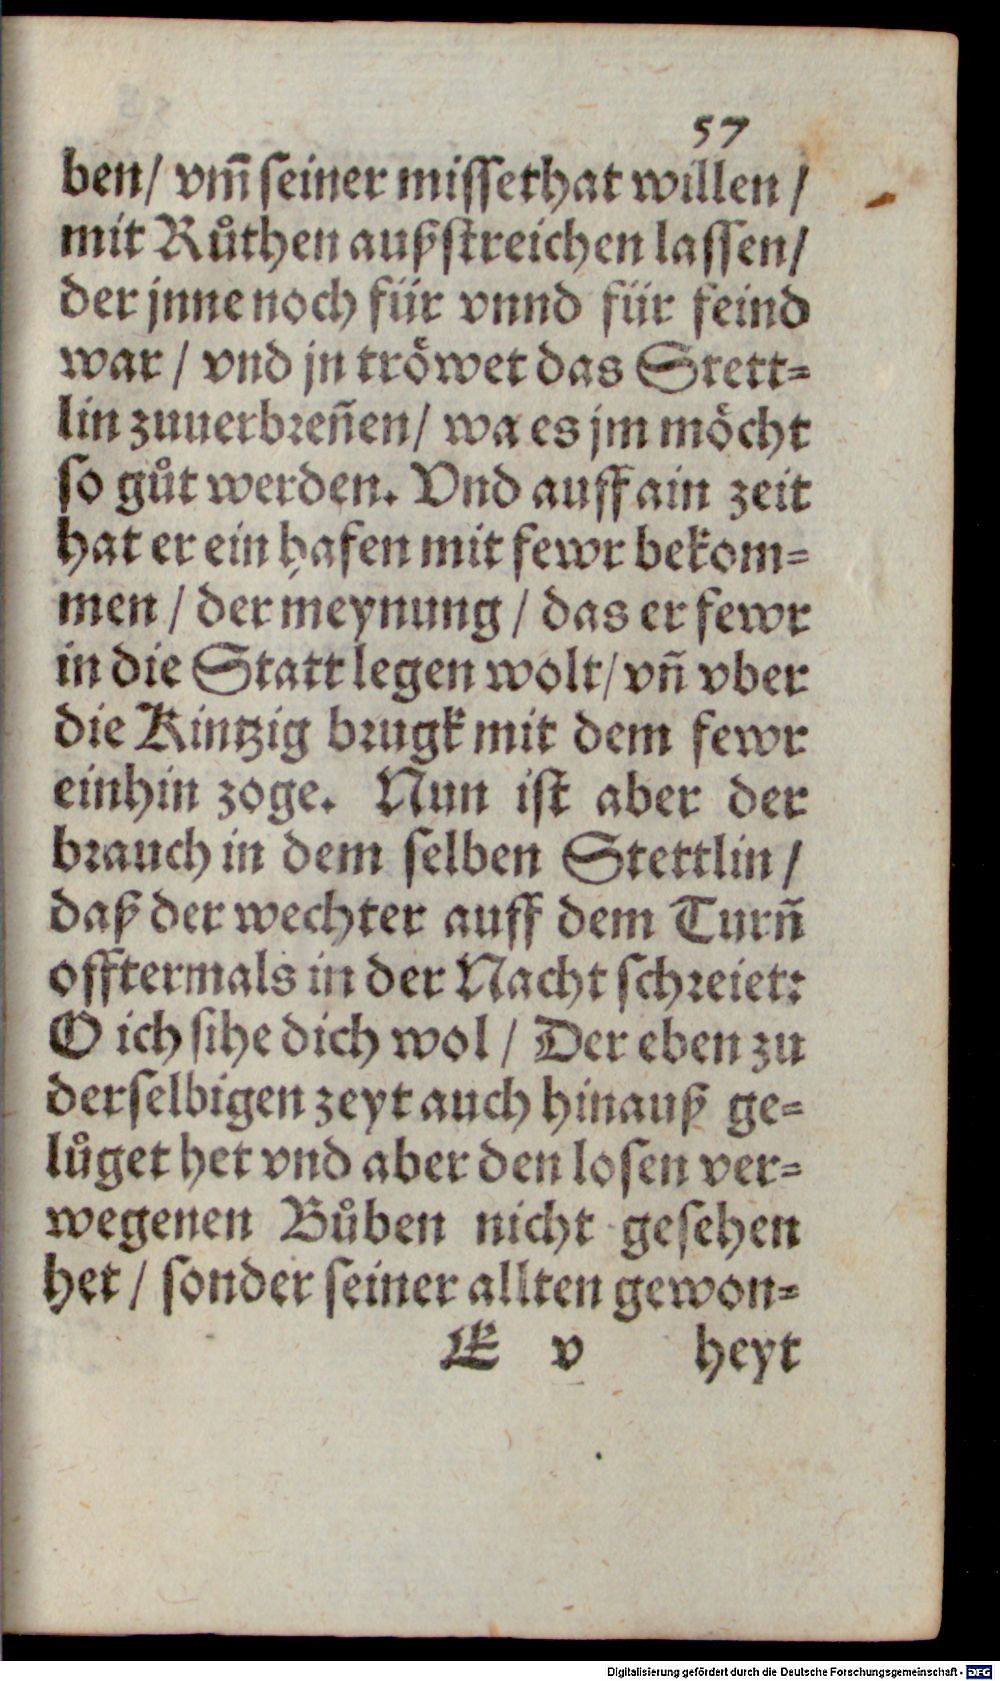 57
ben/ vm̃ seiner missethat willen /
mit Růthen außstreichen lassen/
der jnne noch für vnnd für feind
war / vnd jn tröwet das Stett-
lin zuuerbreñen/ wa es jm möcht
so gůt werden. Vnd auff ain zeit
hat er ein hafen mit fewr bekom-
men / der meynung / das er fewr
in die Statt legen wolt/ vñ vber
die Kintzig brugk mit dem fewr
einhin zoge. Nun ist aber der
brauch in dem selben Stettlin /
daß der wechter auff dem Turñ
offtermals in der Nacht schreiet:
O ich sihe dich wol / Der eben zu
derselbigen zeyt auch hinauß ge-
lůget het vnd aber den losen ver-
wegenen Bůben nicht gesehen
het / sonder seiner allten gewon-
E v heyt
Digitalisierung gefördert durch die Deutsche Forschungsgemeinschaft - DFG